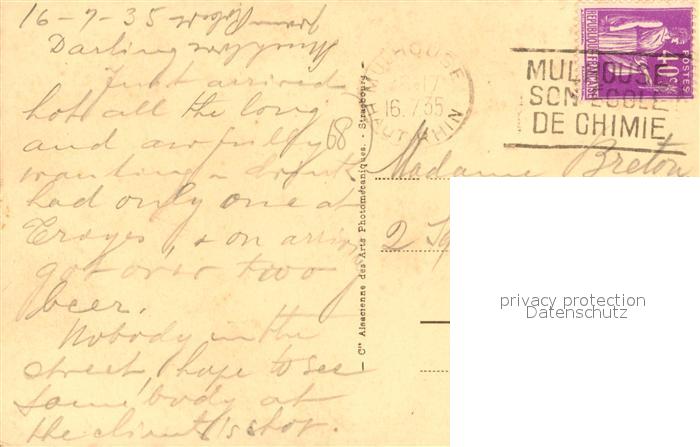 16-7-35
Darling
Just arrived
hot all the long
and awfully
wanting a drink
had only one at
Troyes, & on arriving
got over two
beer.
Nobody in the
street, hope to see
some body at
the client's shop.
68
Cie Alsacienne des Arts Photomécaniques. - Strasbourg -
MULHOUSE
16.7.35
HAUT-RHIN
MULHOUSE
SON ECOLE
DE CHIMIE
REPUBLIQUE FRANÇAISE
POSTES
40c
Madame Breton
2
privacy protection
Datenschutz